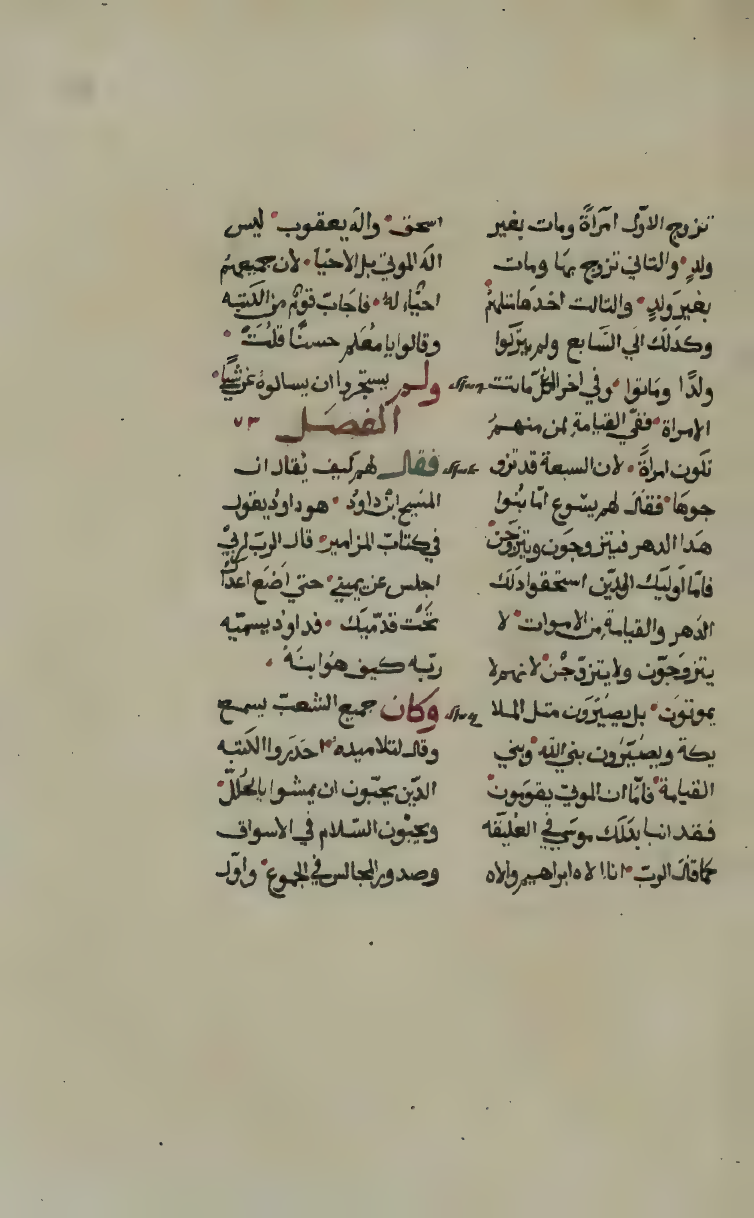 تزوج الاوّل امرأةً ومات بغير
ولدٍ والثاني تزوج بها ومات
بغير ولدٍ والثالث اخدها مثلهمْ
وكدلك الي السّابع ولم يتركوا
ولدًا وماتوا وفي اخر الكلّ ماتت
الامراة ففي القيامة لمن منهم
تكون امراةً لان السبعة قد تزو
جوها فقال لهم يسوع امّا بنُوا
هدا الدهر فيتزوجون ويتزوجن
فامّا اوليك الدين استحقوا دلك
الدهر والقيامة من الاموات لا
يتزوجون ولا يتزوّجن لانهم لا
يموتون بل يصيّرون متل الملا
يكة ويصيّرون بني الله وبني
القيامة فامّا ان الموتي يقومون
فقد انبا بدلك موسي في العليقه
كما قال الربّ انا الاه ابراهيم والاه
اسحق واله يعقوب ليس
اله الموتي بل الاحيا لان جميعهم
احيّاء له فاجاب قومٌ من الكتبه
وقالوا يا معلم حسنًا قلت
ولم يستجروا ان يسالوه عن شيًا
الفصل ٧٣
فقال لهم كيف يقال ان
المسيح ابن داود هو داود يقول
في كتاب المزامير قال الرب لربي
اجلس عن يميني حتي اضع اعداك
تحت قدميك فداود يسميه
ربّه كيف هو ابنه
وكان جميع الشعب يسمع
وقال لتلاميده احدروا الكتبه
الدين يحبّون ان يمشوا بالحلل
ويحبّون السّلام في الاسواق
وصدور المجالس في الجموع واوّل